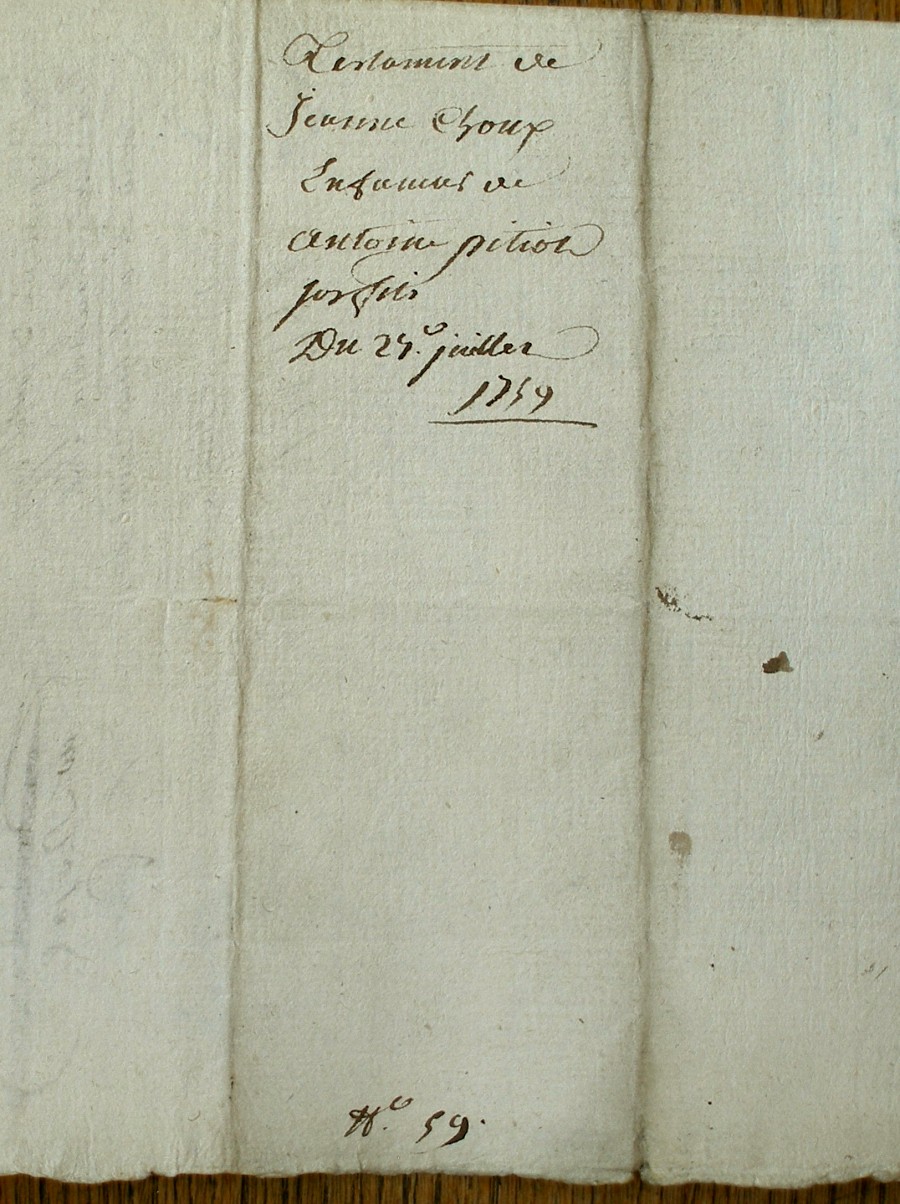 Testament de
Jeanne Choux
En faveur de
antoine pition
son fils
Du 25.e juillet
1759
N.o 59.